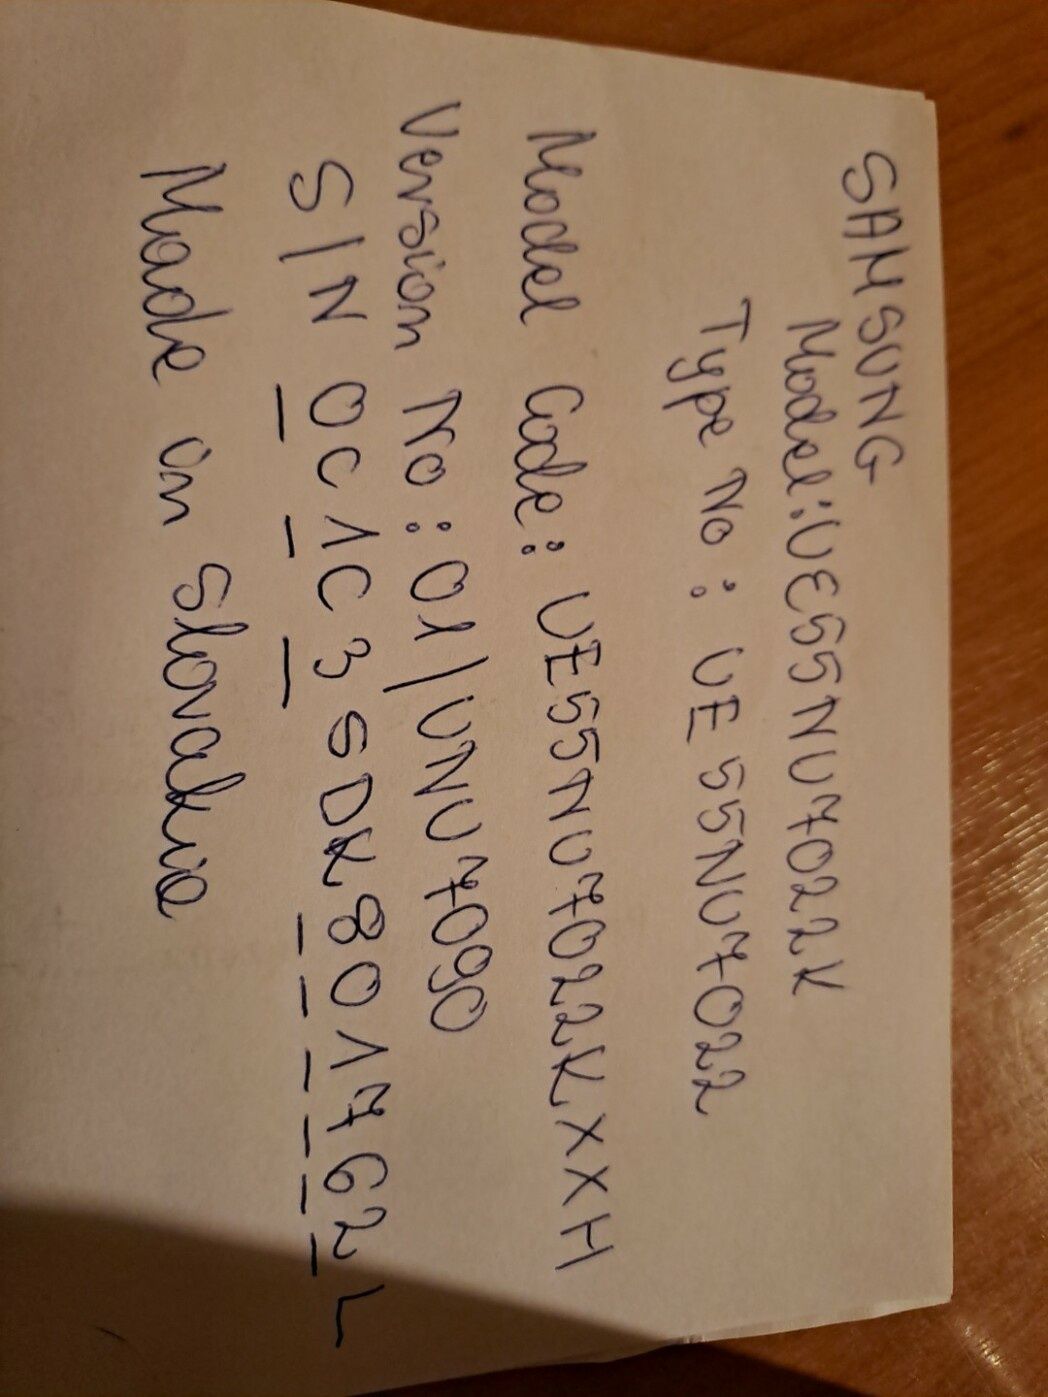 SAMSUNG
Model: UE55NU7022K
Type No: UE55NU7022
Model Code: UE55NU7022KXXH
Version No: 01/UNU7090
S/N 0C1C3SDK801762L
Made in Slovakia